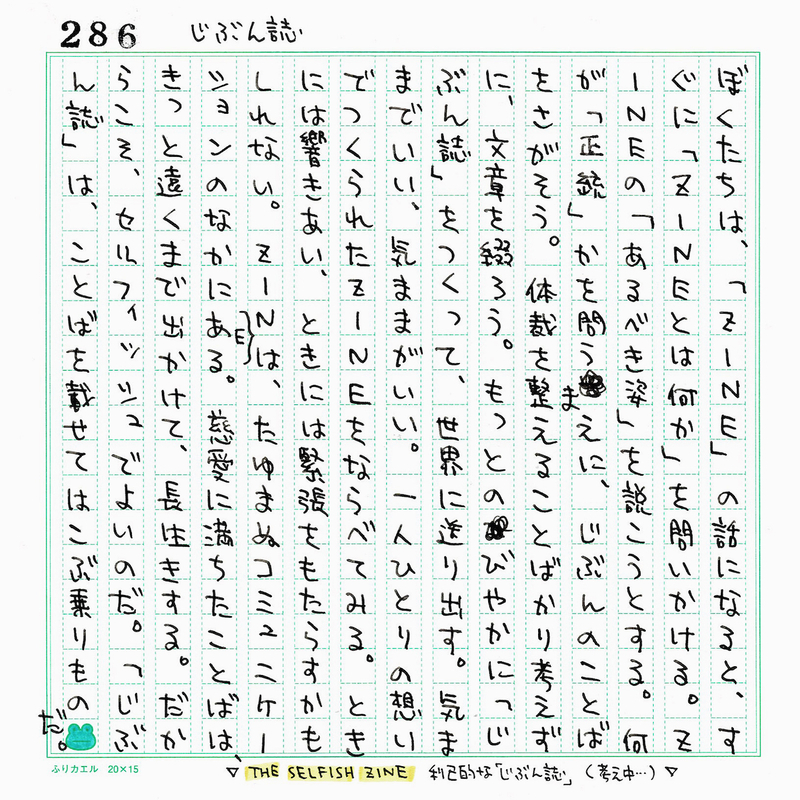 286 じぶん誌
ぼくたちは、「ZINE」の話になると、す
ぐに「ZINEとは何か」を問いかける。Z
INEの「あるべき姿」を説こうとする。何
が「正統」かを問うまえに、じぶんのことば
をさがそう。体裁を整えることばかり考えず
に、文章を綴ろう。もっとのびやかに「じ
ぶん誌」をつくって、世界に送り出す。気ま
までいい、気ままがいい。一人ひとりの想い
でつくられたZINEをならべてみる。とき
には響きあい、ときには緊張をもたらすかも
しれない。ZINEは、たゆまぬコミュニケー
ションのなかにある。慈愛に満ちたことばは、
きっと遠くまで出かけて、長生きする。だか
らこそ、セルフィッシュでよいのだ。「じぶ
ん誌」は、ことばを載せてはこぶ乗りもの
だ。
ふりカエル 20×15
▽ THE SELFISH ZINE 利己的な「じぶん誌」(考え中…) ▽